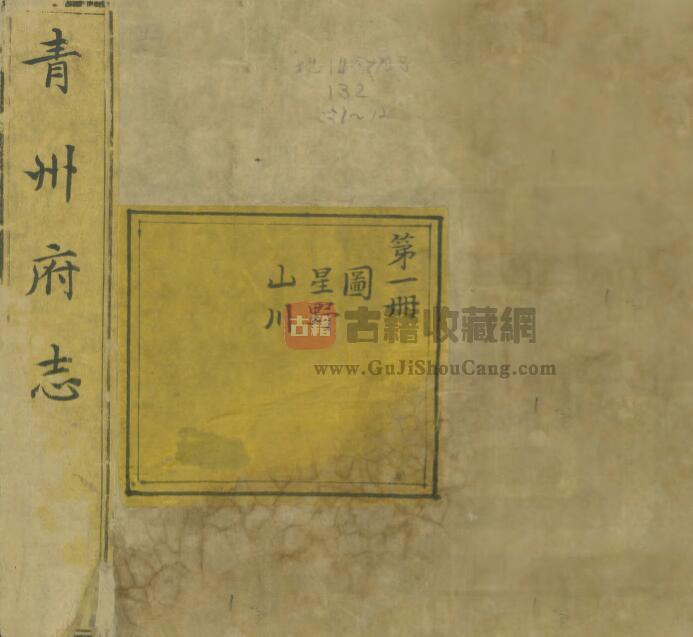 青州府志
第一册
圖
星野
山川
132
古籍
古籍收藏網
www.GuJiShouCang.com